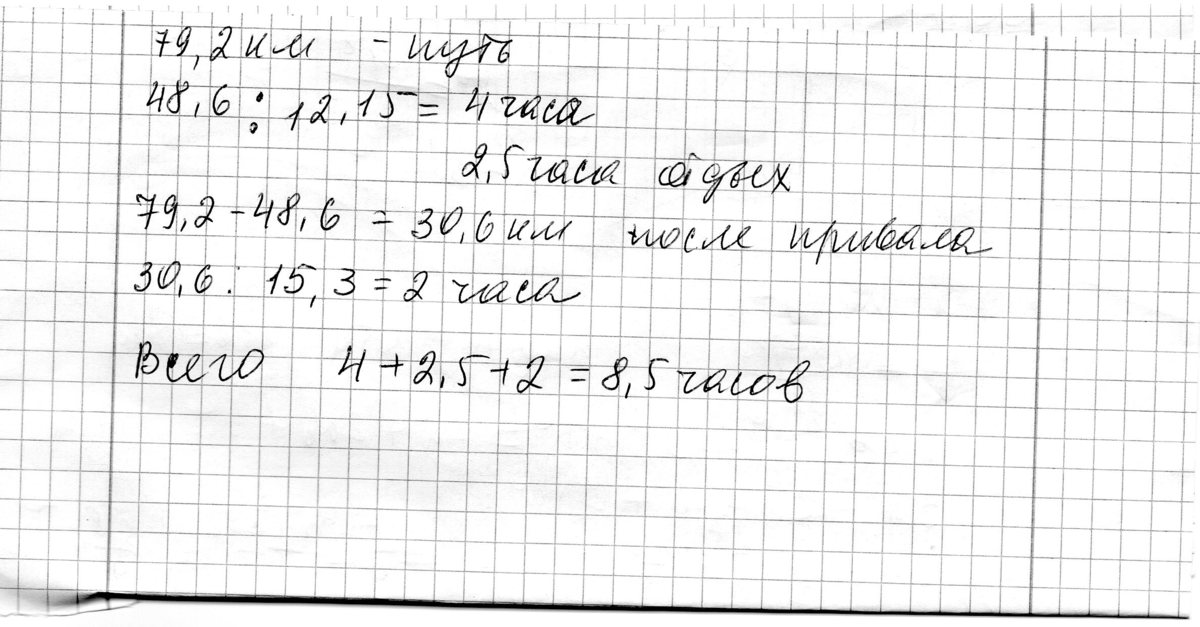 79,2 км - путь
48,6 : 12,15 = 4 часа
2,5 часа отдых
79,2 - 48,6 = 30,6 км после привала
30,6 : 15,3 = 2 часа
Всего 4 + 2,5 + 2 = 8,5 часов